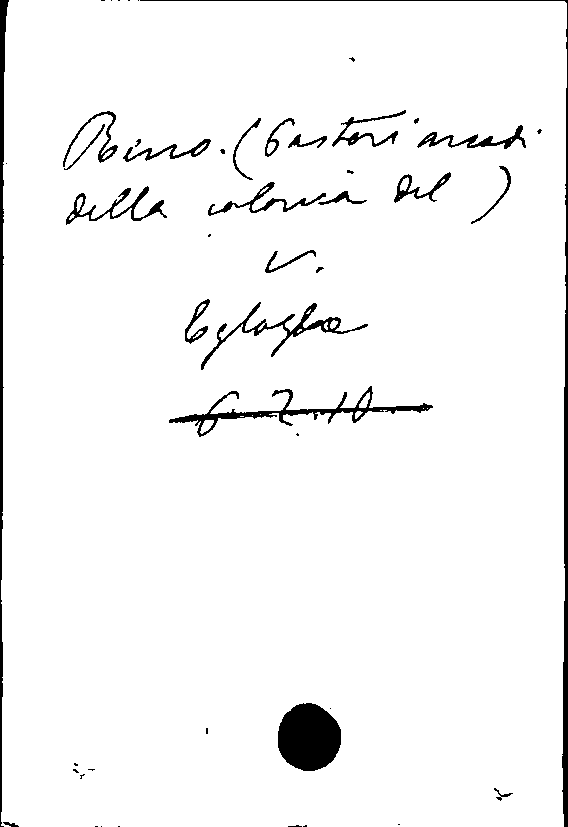 Reno. (Pastori arcadi
della colonia del )
V.
Egloghe
6. 2. 10